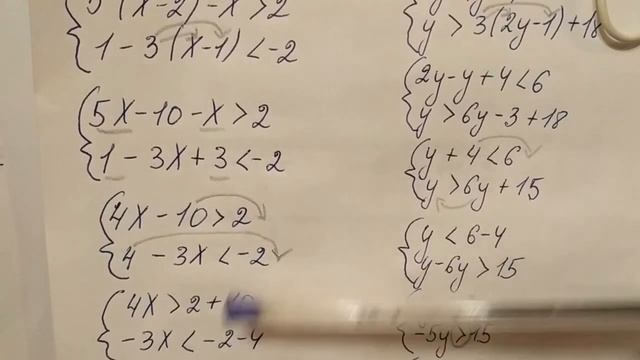 5(x-2)-x>2
1-3(x-1)<-2
5x-10-x>2
1-3x+3<-2
4x-10>2
4-3x<-2
4x>2+10
-3x<-2-4
y>3(2y-1)+18
2y-y+4<6
y>6y-3+18
y+4<6
y>6y+15
y<6-4
y-6y>15
-5y>15